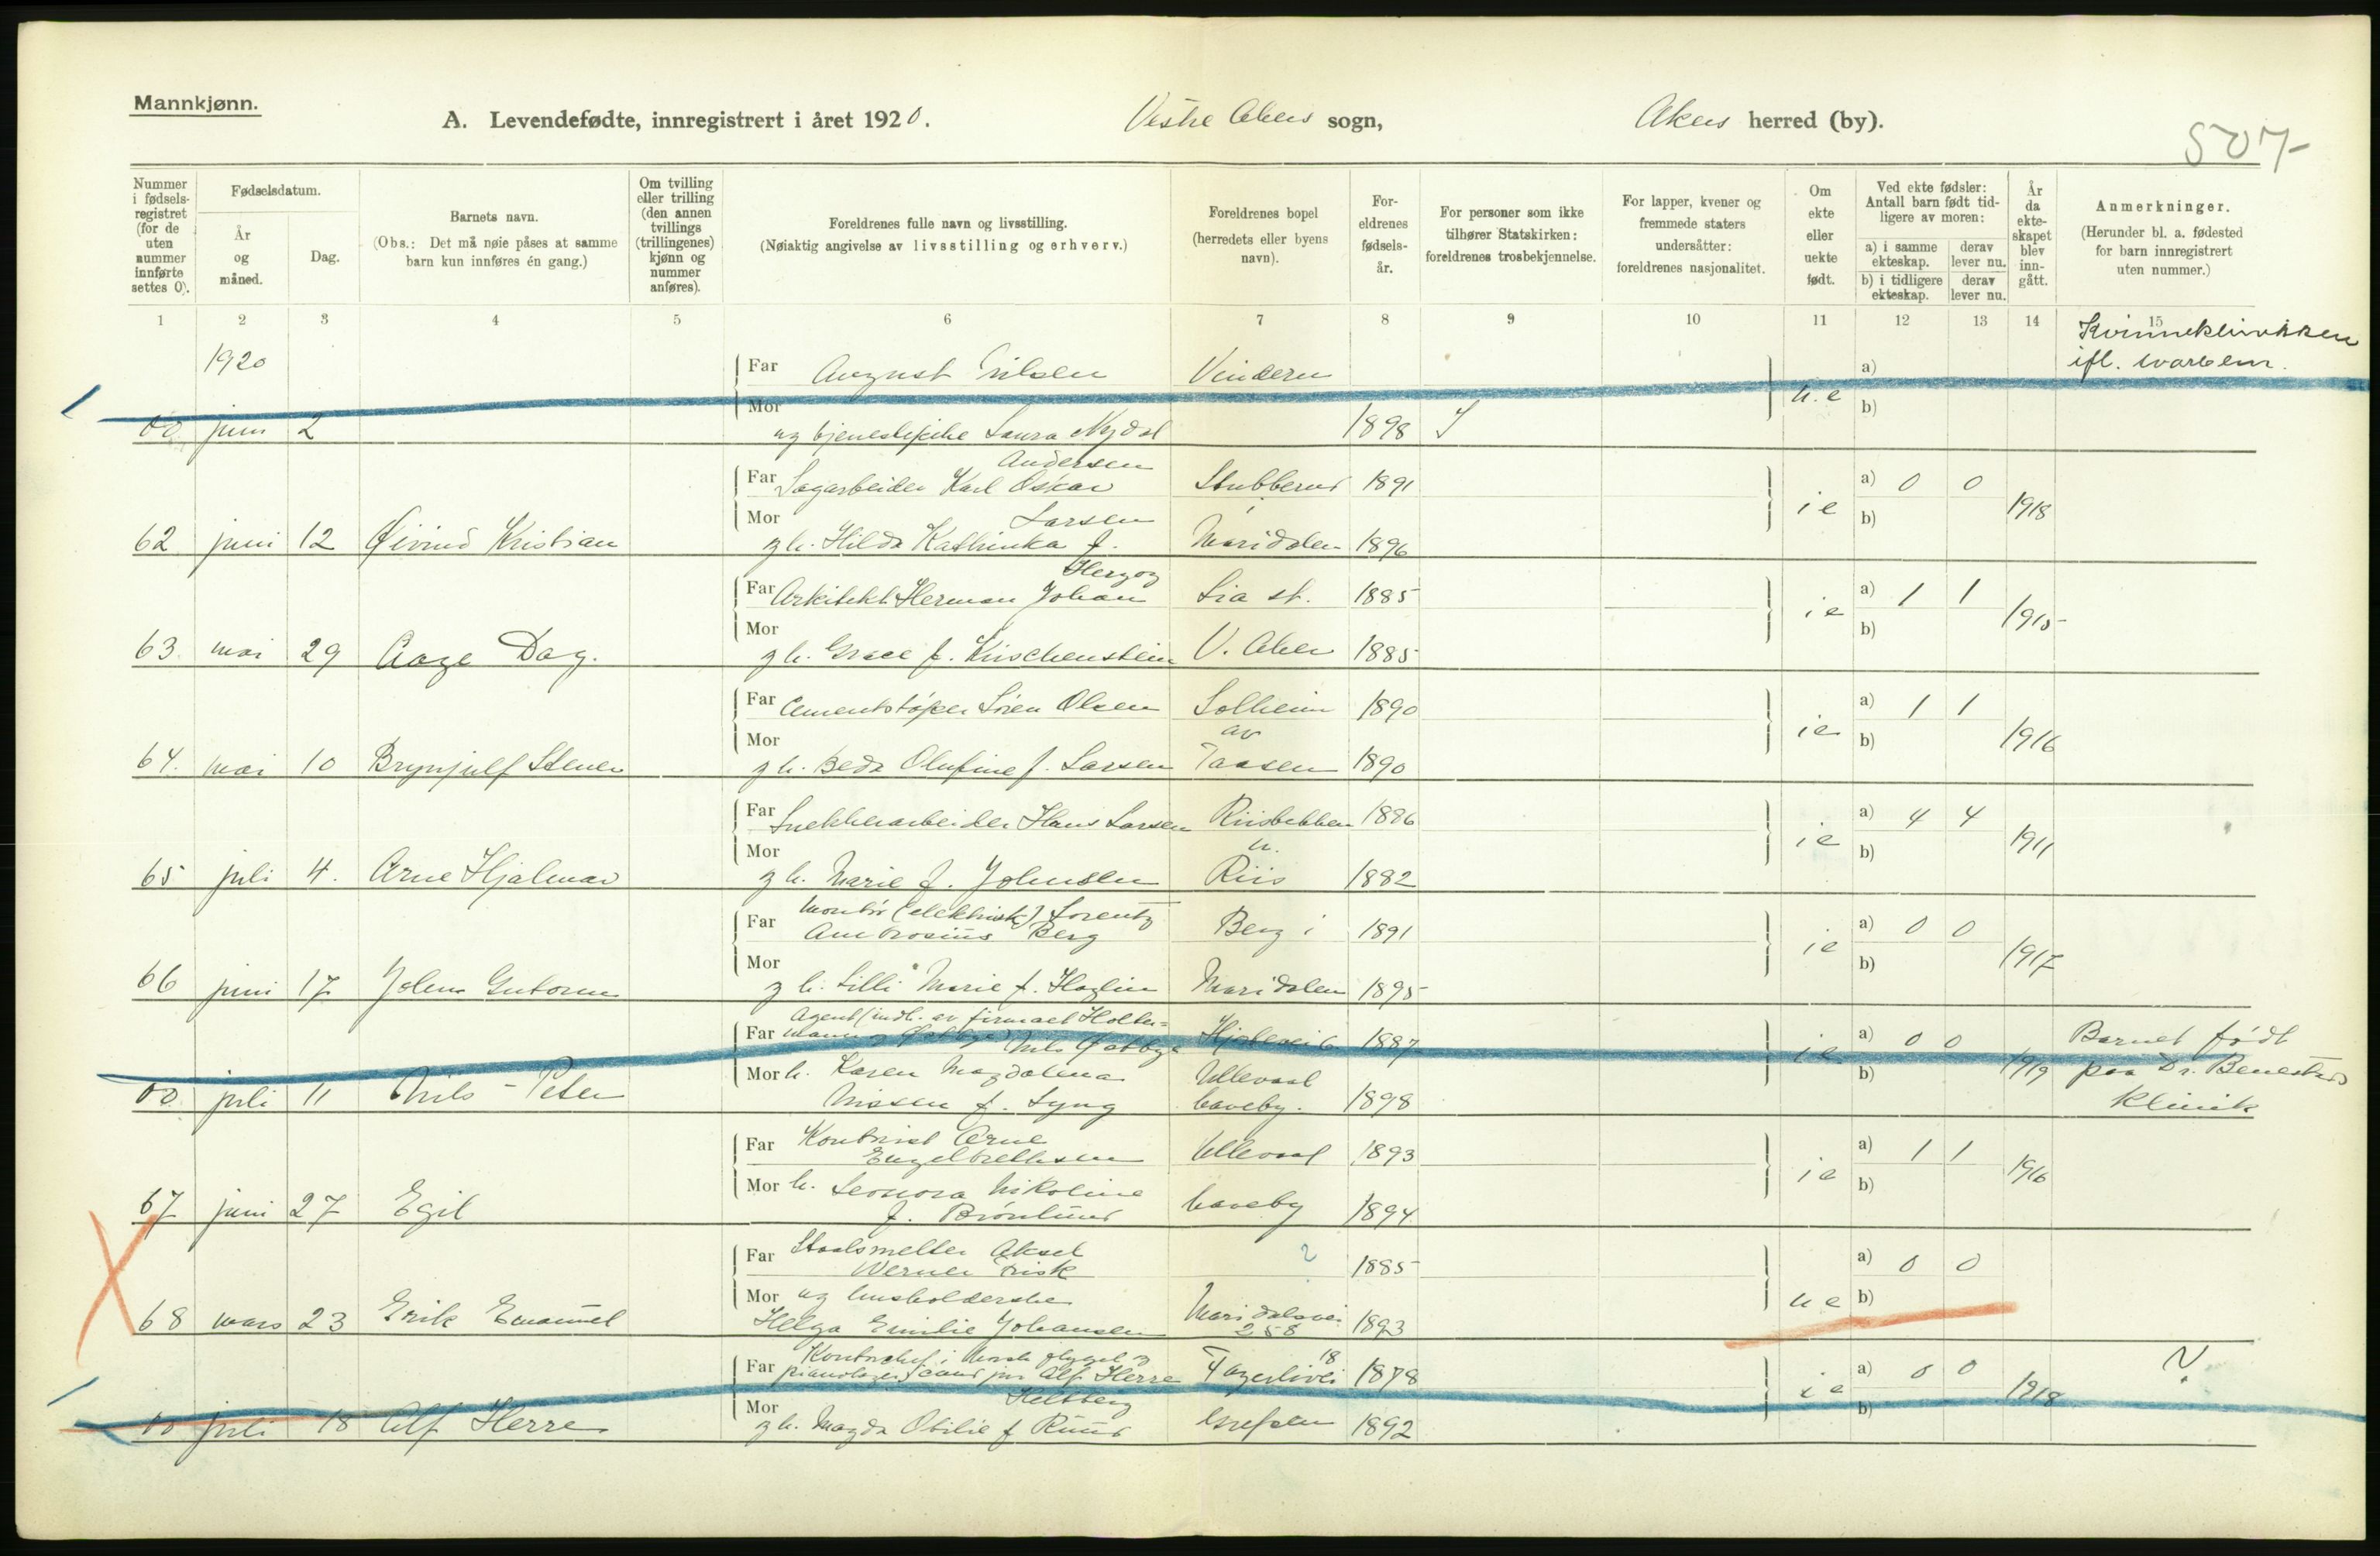 Mannkjønn.
A. Levendefødte, innregistrert i året 1920. Vestre Akers sogn, Akers herred (by).
507-
Nummer i fødsels-registret (for de uten nummer innførte settes 0).
Fødselsdatum.
År og måned.
Dag.
Barnets navn.
(Obs.: Det må nøie påses at samme barn kun innføres én gang.)
Om tvilling eller trilling (den annen tvillings (trillingenes) kjønn og nummer anføres).
Foreldrenes fulle navn og livsstilling.
(Nøiaktig angivelse av livsstilling og erhverv.)
Foreldrenes bopel (herredets eller byens navn).
For-eldrenes fødsels-år.
For personer som ikke tilhører Statskirken: foreldrenes trosbekjennelse.
For lapper, kvener og fremmede staters undersåtter: foreldrenes nasjonalitet.
Om ekte eller uekte født.
Ved ekte fødsler: Antall barn født tid-ligere av moren:
a) i samme ekteskap. derav lever nu.
b) i tidligere ekteskap. derav lever nu.
År da ekte-skapet blev inn-gått.
Anmerkninger.
(Herunder bl. a. fødested for barn innregistrert uten nummer.)
1 2 3 4 5 6 7 8 9 10 11 12 13 14 15
1920 Far August Nilsen Vinderen a) Kvinneklinikken
ifl.
00 juni 2 Mor ug tjenestepike Laura Nydal 1898 u.e b)
Andersen
Far Sagarbeider Karl Oskar Stubberud 1891 ie a) 0 0 1918
Larsen
62 juni 12 Øivind Kristian Mor g h. Hilda Kathinka f. Maridalen 1896 b)
Herzog
Far Arkitekt Herman Johan Lia st. 1885 ie a) 1 1 1915
63 mai 29 Aage Dag. Mor g h. Grace f. Kirschenstein V. Aker 1885 b)
Far Cementstøper Sören Olsen Solheim 1890 ie a) 1 1 1916
av
64. mai 10 Brynjulf Stener Mor g h. Beda Olufine f. Larsen Taasen 1890 b)
Far Snekkerarbeider Hans Larsen Riisbakken 1886 ie a) 4 4 1911
65 juli 4. Arne Hjalmar Mor g h. Marie f. Johnsen Riis 1882 b)
Far Montör (elektrisk) Lorentz
Ambrosius Berg Berg i 1891 ie a) 0 0 1917
66 juni 17 John Gutorm Mor g h. Lilli Marie f. Haglin Maridalen 1895 b)
Agent (indh. av firmaet Holter=
Far mann og Østbye) Nils Østbye 1887 ie a) 0 0 1919 Barnet født
paa Dr. Benestads
00 juli 11 Nils - Peter Mor h. Karen Magdalena Ullevaal b)
Nissen f. Lyng haveby. 1898 Klinik
Far Kontorist Arne
Engelbrethsen Ullevaal 1893 ie a) 1 1 1916
67 juni 27 Egil Mor h. Leonora Nikoline haveby 1894 b)
f. Brönlund
Far Staalsmelter Aksel
Werner Frisk 2 1885 ue a) 0 0
68 mars 23 Erik Emanuel Mor ug husholderske b)
Helga Emilie Johansen Maridalsvei 258 1893
Far Kontorchef i Norsk flygel og
pianolager cand jur Alf Herre Fagerlivei 18 1878 ie a) 0 0 1918 ?
Helberg
00 juli 18 Alf Herre Mor g h. Magda Otilie f Ruud Grefsen 1892 b)